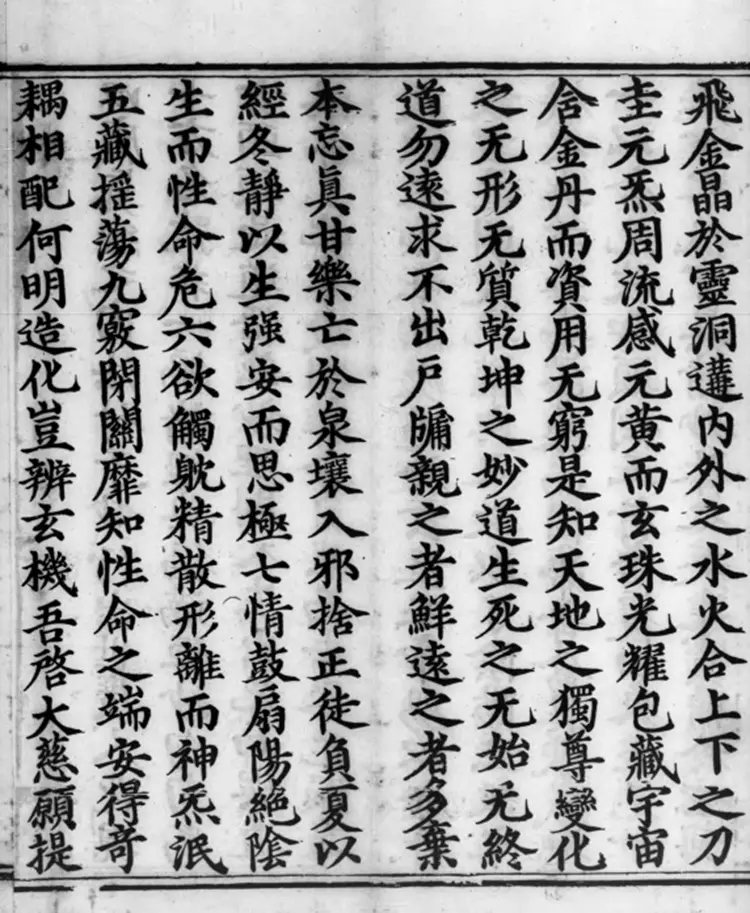 飛金晶於靈洞遘内外之水火合上下之刀
圭元炁周流感元黄而玄珠光耀包藏宇宙
含金丹而資用无窮是知天地之獨尊變化
之无形无質乾坤之妙道生死之无始无終
道勿遠求不出戸牖親之者鮮遠之者多棄
本忘眞甘樂亡於泉壤入邪捨正徒負夏以
經冬靜以生强安而思極七情鼓扇陽絶陰
生而性命危六欲觸躭精散形離而神炁泯
五藏揺蕩九竅閉關靡知性命之端安得竒
耦相配何明造化豈辨玄機吾啓大慈願提